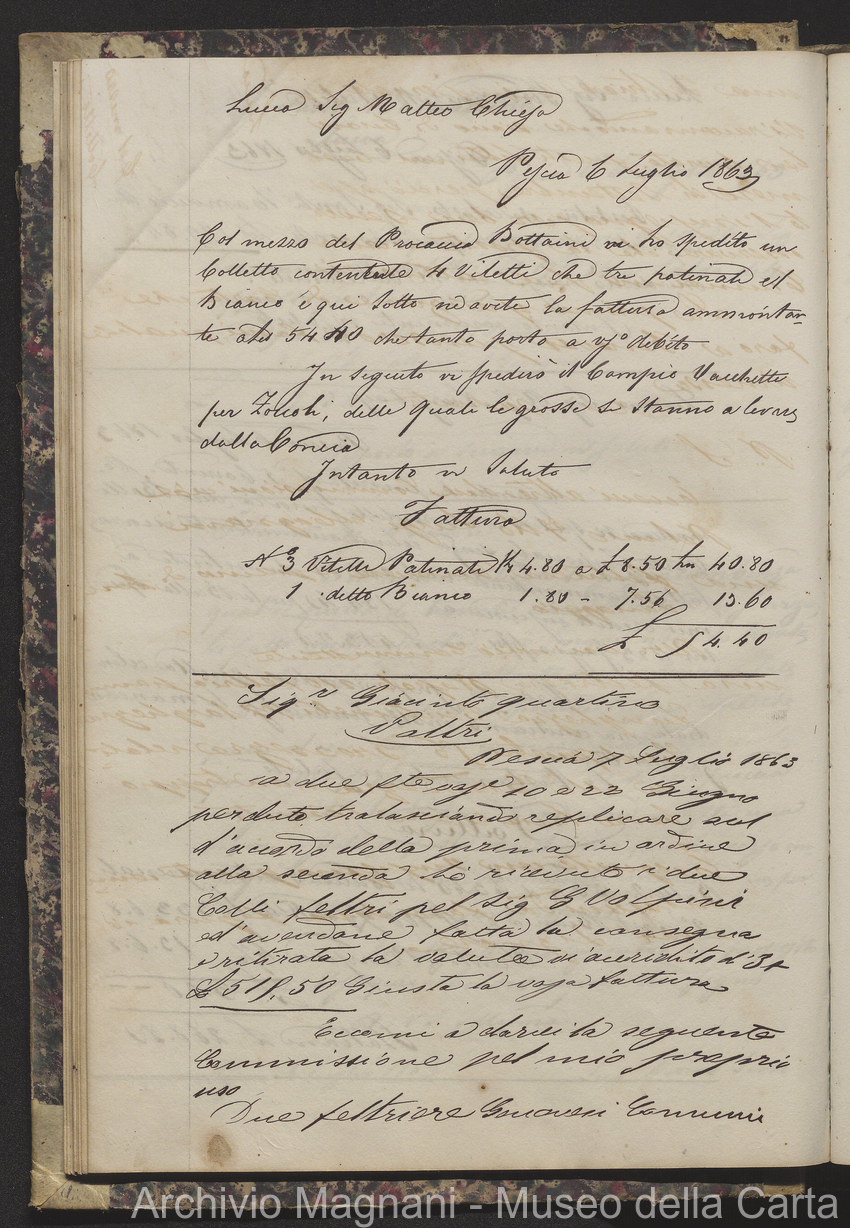 Lucca Sig Matteo Chiesa
Pescia 6 Luglio 1863
Col mezzo del Procaccia Bottaini vi ho spedito un
Colletto contenente 4 Vitelli che tre patinati ed
Bianco e qui sotto ne avete la fattura ammontan-
te a 54 40 che tanto porto a vso debito
In seguito vi spedirò il Campio Vacchette
per Zoccoli, delle quale le grosse si stanno a levare
dalla Concia
Intanto vi Saluto
Fattura
No 3 Vitelli Patinati K 4.80 a £ 8.50 40.80
1 detto Bianco 1.80 - 7.56 13.60
£ 54.40
Sigr Giacinto quartino
Voltri
Pescia 7 Luglio 1863
a due 10 e 22 Giugno
perduto tralasciando replicare sul
d'accordo della prima in ordine
alla seconda ho ricevuto i due
Colli feltri pel Sig G Volpini
ed avendone fatta la consegna
e ritirata la valuta vi accredito di
£ 518,50 Giusta la fattura
Eccomi a darvi la seguente
Commissione pel mio proprio
uso
Due feltriere Genovesi Comuni
Archivio Magnani - Museo della Carta